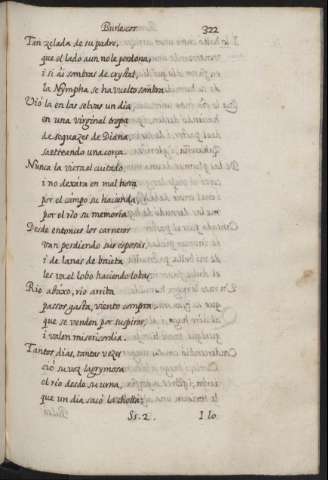 Burlescos. 322
Tan zelada de su padre,
que el lado aun no le perdona,
i si ai sombras de crystal,
la Nympha se ha vuelto sombra.
Viò la en las selvas un dia,
en una virginal tropa
de sequazes de Diana,
saeteando una corça.
Nunca la viera el cuitado,
i no dexàra en mal hora
por el campo su hacienda,
por el rio su memoria.
Desde entonces los carneros
van perdiendo sus esposas,
i de lanas de baieta
les va el lobo haciendo lobas.
Rio abaxo, rio arriba
passos gasta, viento compra
que se venden por suspiros,
i valen misericordia.
Tantos dias, tantas vezes
oiò su voz lagrymosa
el rio desde su urna,
que un dia sacò la
Ss. 2. I lo